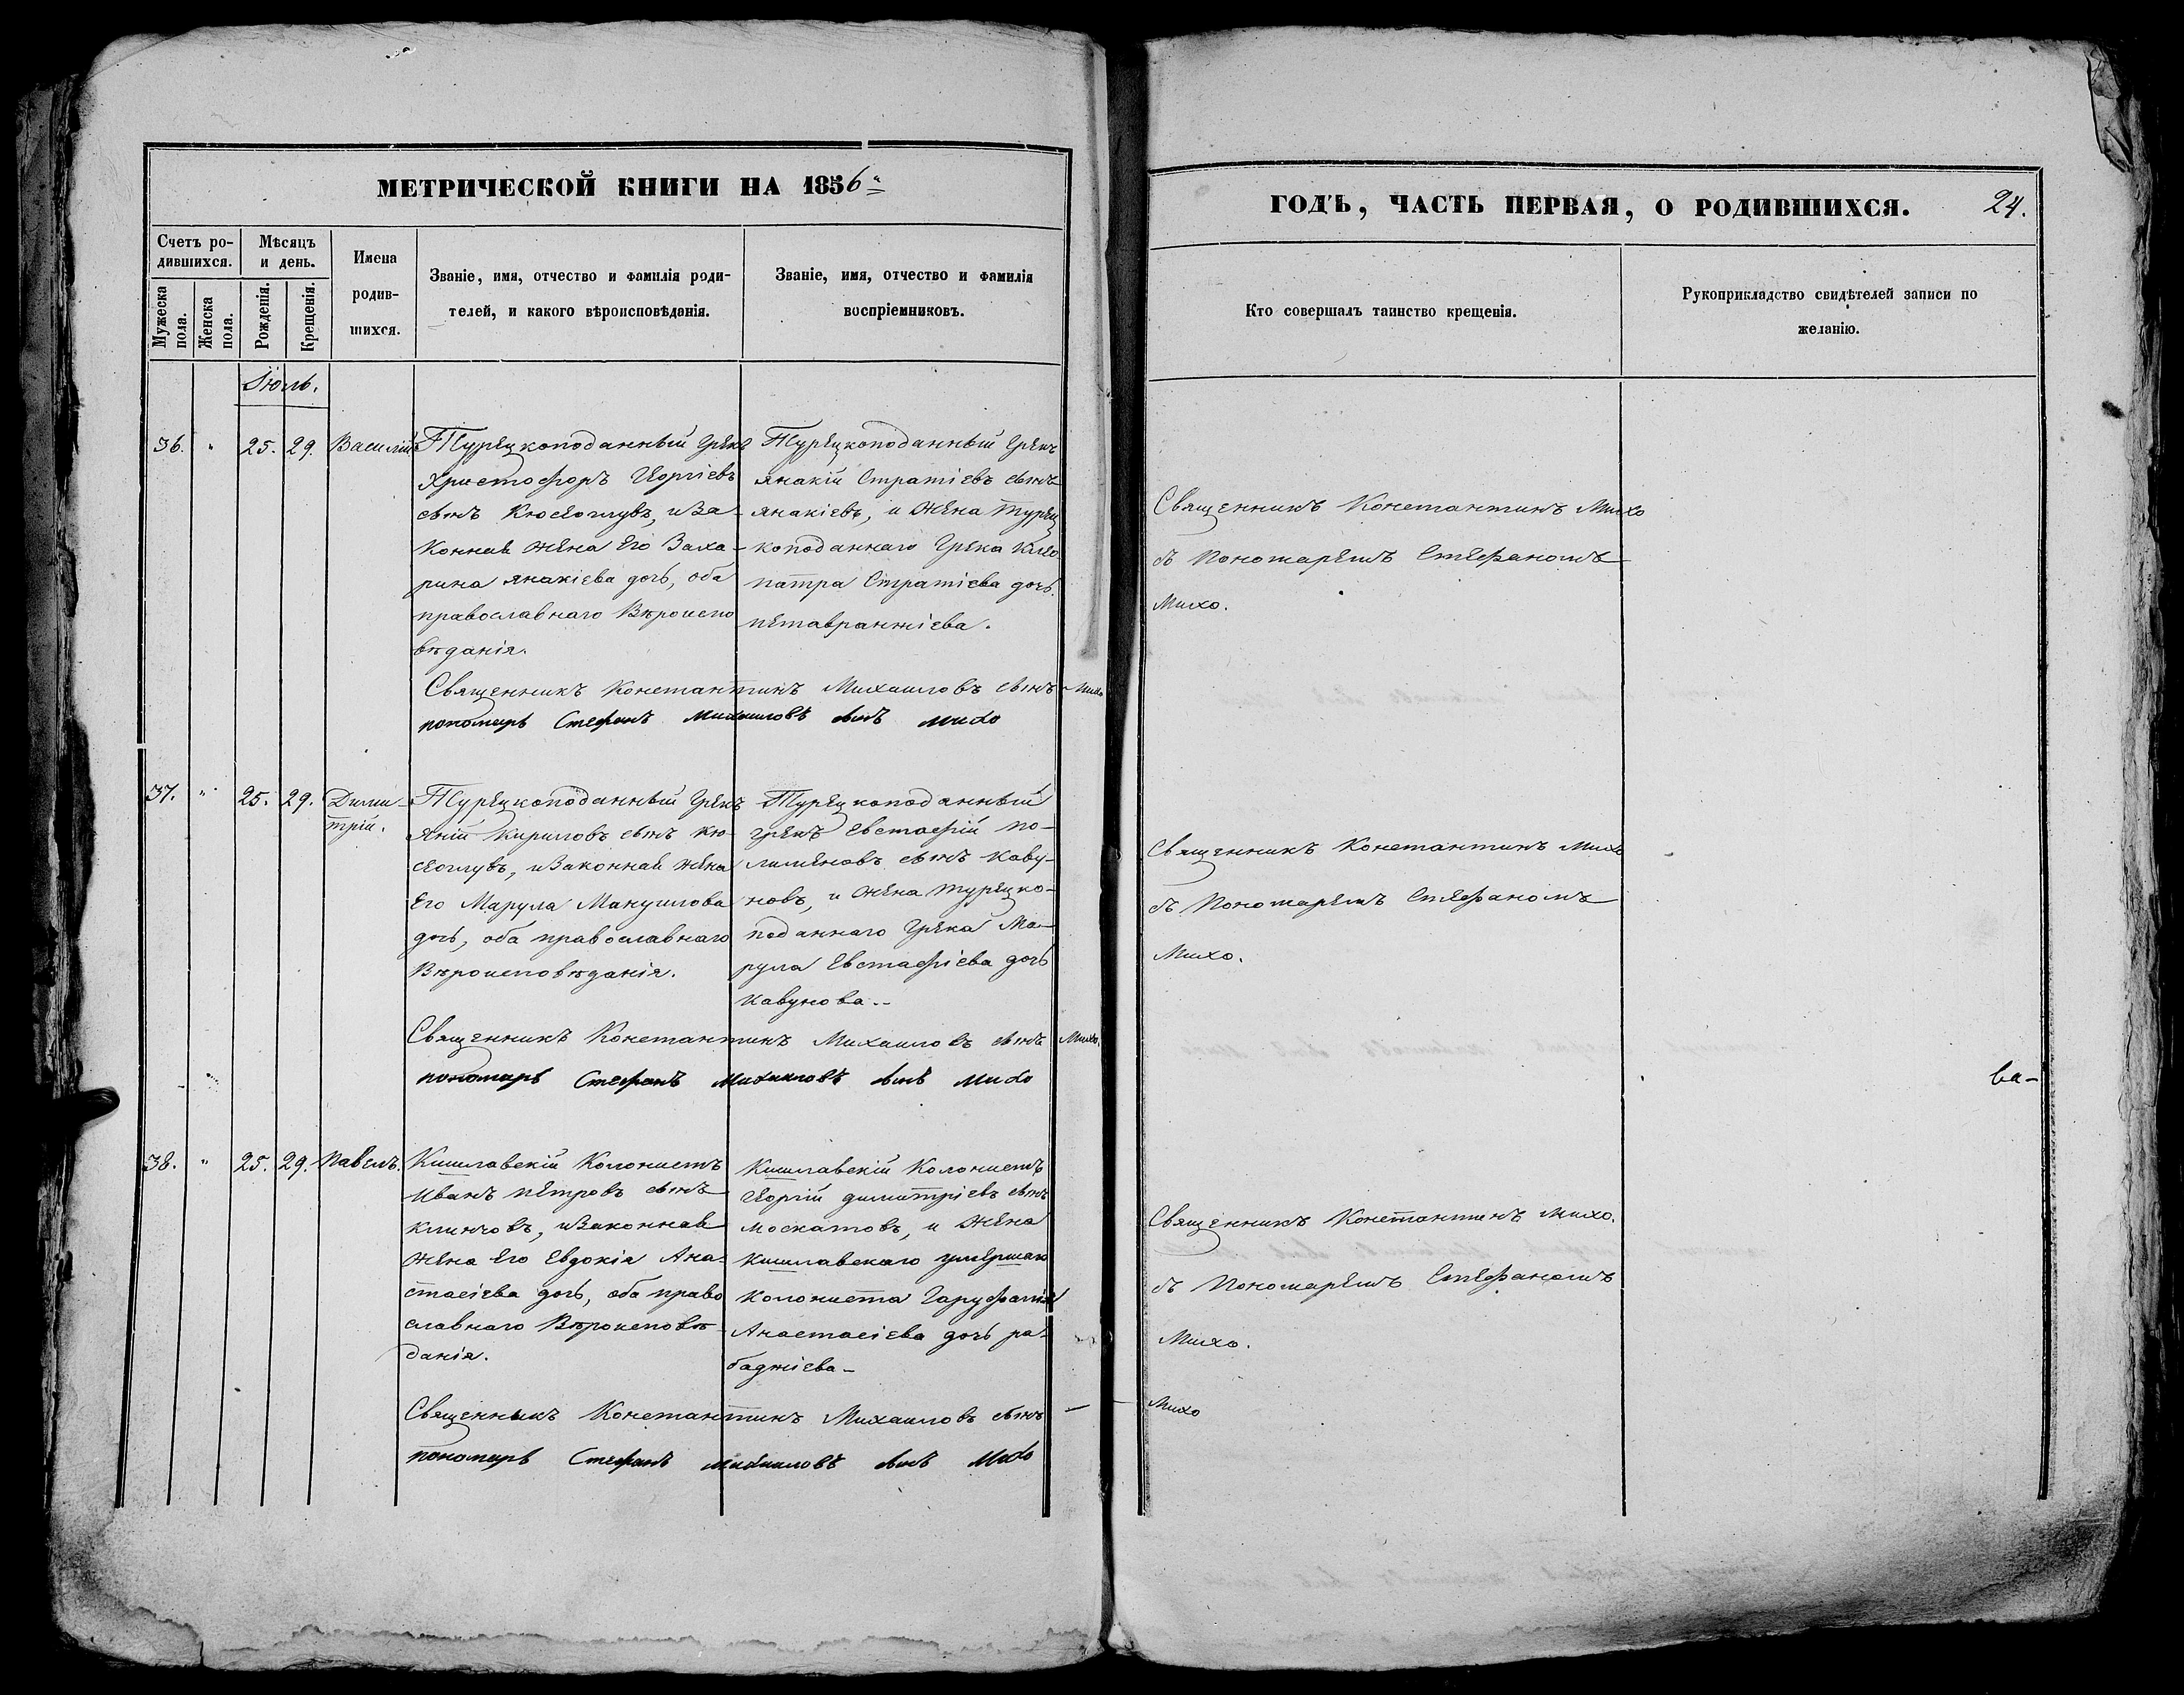 МЕТРИЧЕСКОЙ КНИГИ НА 1856
Счетъ ро-
дившихся.
Мѣсяцъ
и день.
Мужеска
пола.
Женска
пола.
Рожденія.
Крещенія.
Имена
родив-
шихся.
Званіе, имя, отчество и фамилія роди-
телей, и какого вѣроисповѣданія.
Званіе, имя, отчество и фамилія
воспріемниковъ.
Іюль.
36. " 25. 29. Василій
Турецкоподанный Грекъ
Христофоръ Георгіевъ
сынъ Кюсеоглувъ, и За-
конная жена Его Заха-
рина Янакіева дочь, оба
православнаго Вѣроиспо
вѣданія.
Турецкоподанный Грекъ
Янакій Стратіевъ сынъ
Янакіевъ, и Жена Турец
коподаннаго Грека Клео
патра Стратіева дочь
Священникъ Константинъ Михаиловъ сынъ Михо
пономарь Стефанъ Михаиловъ сынъ Михо
37. " 25. 29. Дими-
трій.
Турецкоподанный Грекъ
Яній Кириловъ сынъ Кю-
сеоглувъ, и Законная жена
Его Марула Мануилова
дочь, оба православнаго
Вѣроисповѣданія.
Турецкоподанный
Грекъ Евстафій По-
лименовъ сынъ Каву-
новъ, и Жена Турецко-
поданнаго Грека Ма-
рула Евстафіева дочь
Кавунова..
Священникъ Константинъ Михаиловъ сынъ Михо.
пономарь Стефанъ Михаиловъ сынъ Михо
38. " 25. 29. Павелъ.
Кишлавскій Колонистъ
Иванъ Петровъ сынъ
Клинчовъ, и Законная
Жена Его Евдокія Ана-
стасіева дочь, оба право
славнаго Вѣроисповѣ-
данія.
Кишлавскій Колонистъ
Георгій Димитріевъ сынъ
Москатовъ, и Жена
Кишлавскаго умершаго
Колониста Гаруфалія
Анастасіева дочь ра-
баджіева-
Священникъ Константинъ Михаиловъ сынъ — — Михо
пономарь Стефанъ Михаиловъ сынъ Михо
ГОДЪ, ЧАСТЬ ПЕРВАЯ, О РОДИВШИХСЯ.
24.
Кто совершалъ таинство крещенія.
Рукоприкладство свидѣтелей записи по
желанію.
Священникъ Константинъ Михо
съ Пономаремъ Стефаномъ
Михо.
Священникъ Константинъ Михо
съ Пономаремъ Стефаномъ
Михо.
ва-
Священникъ Константинъ Михо.
съ Пономаремъ Стефаномъ
Михо.